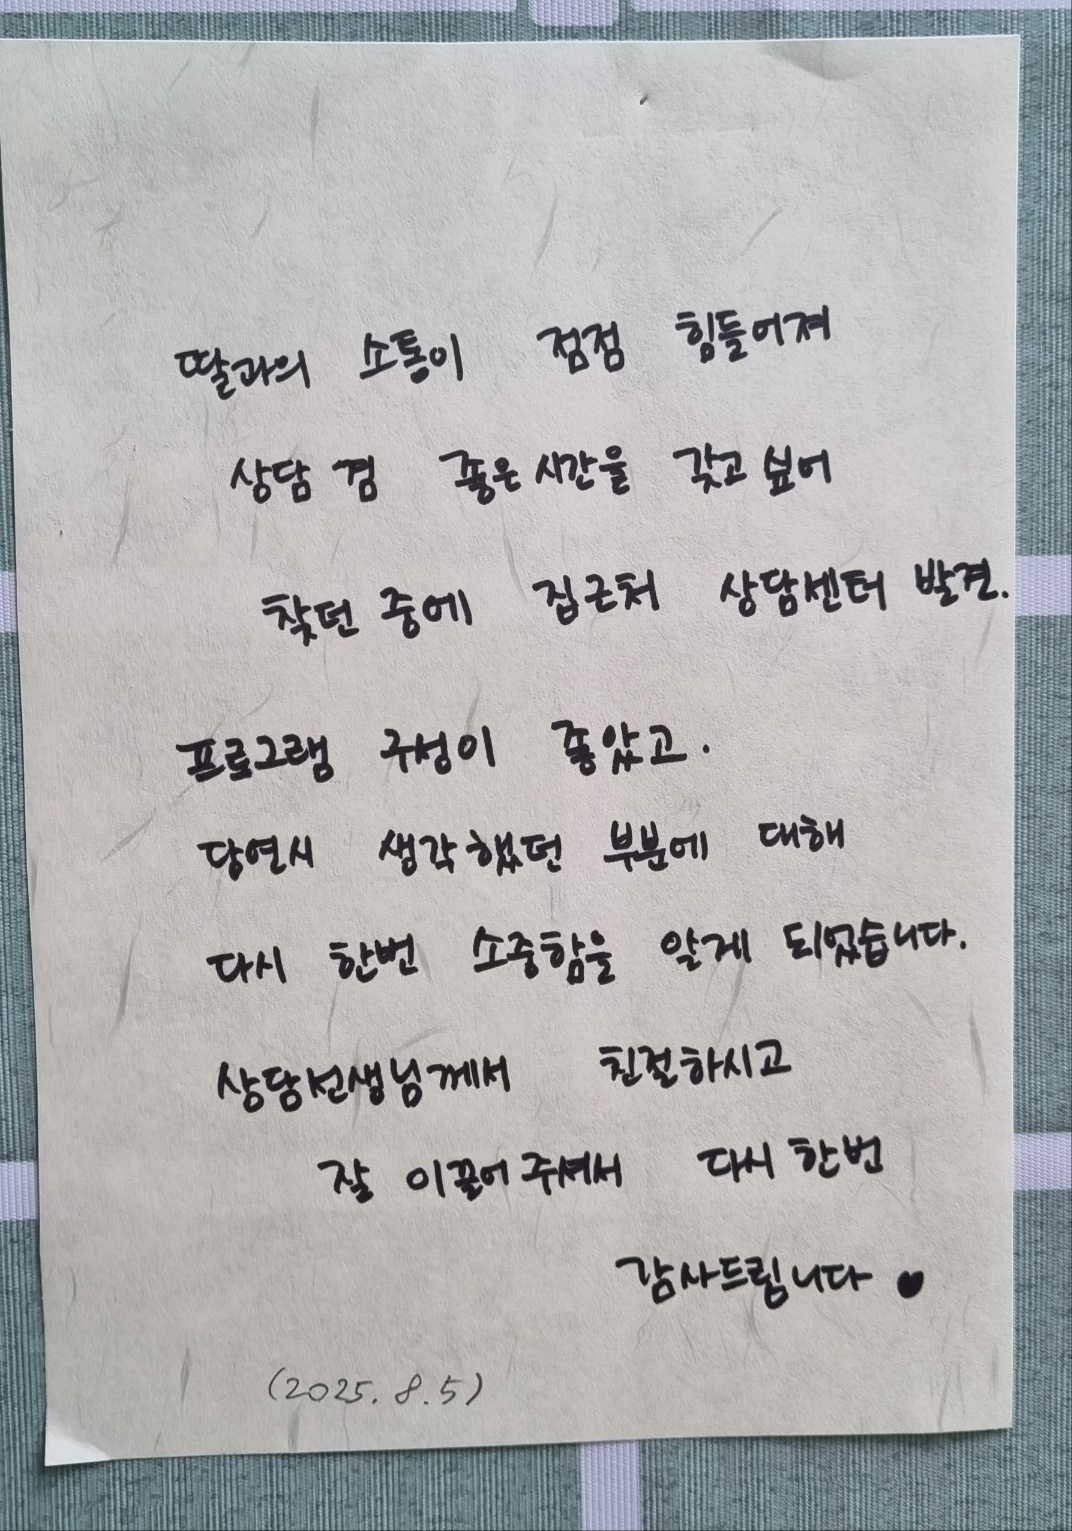 딸과의 소통이 점점 힘들어져
상담 겸 좋은 시간을 갖고 싶어
찾던 중에 집근처 상담센터 발견.
프로그램 구성이 좋았고.
당연시 생각했던 부분에 대해
다시 한번 소중함을 알게 되었습니다.
상담선생님께서 친절하시고
잘 이끌어 주셔서 다시 한번
감사드립니다
(2025. 8. 5)